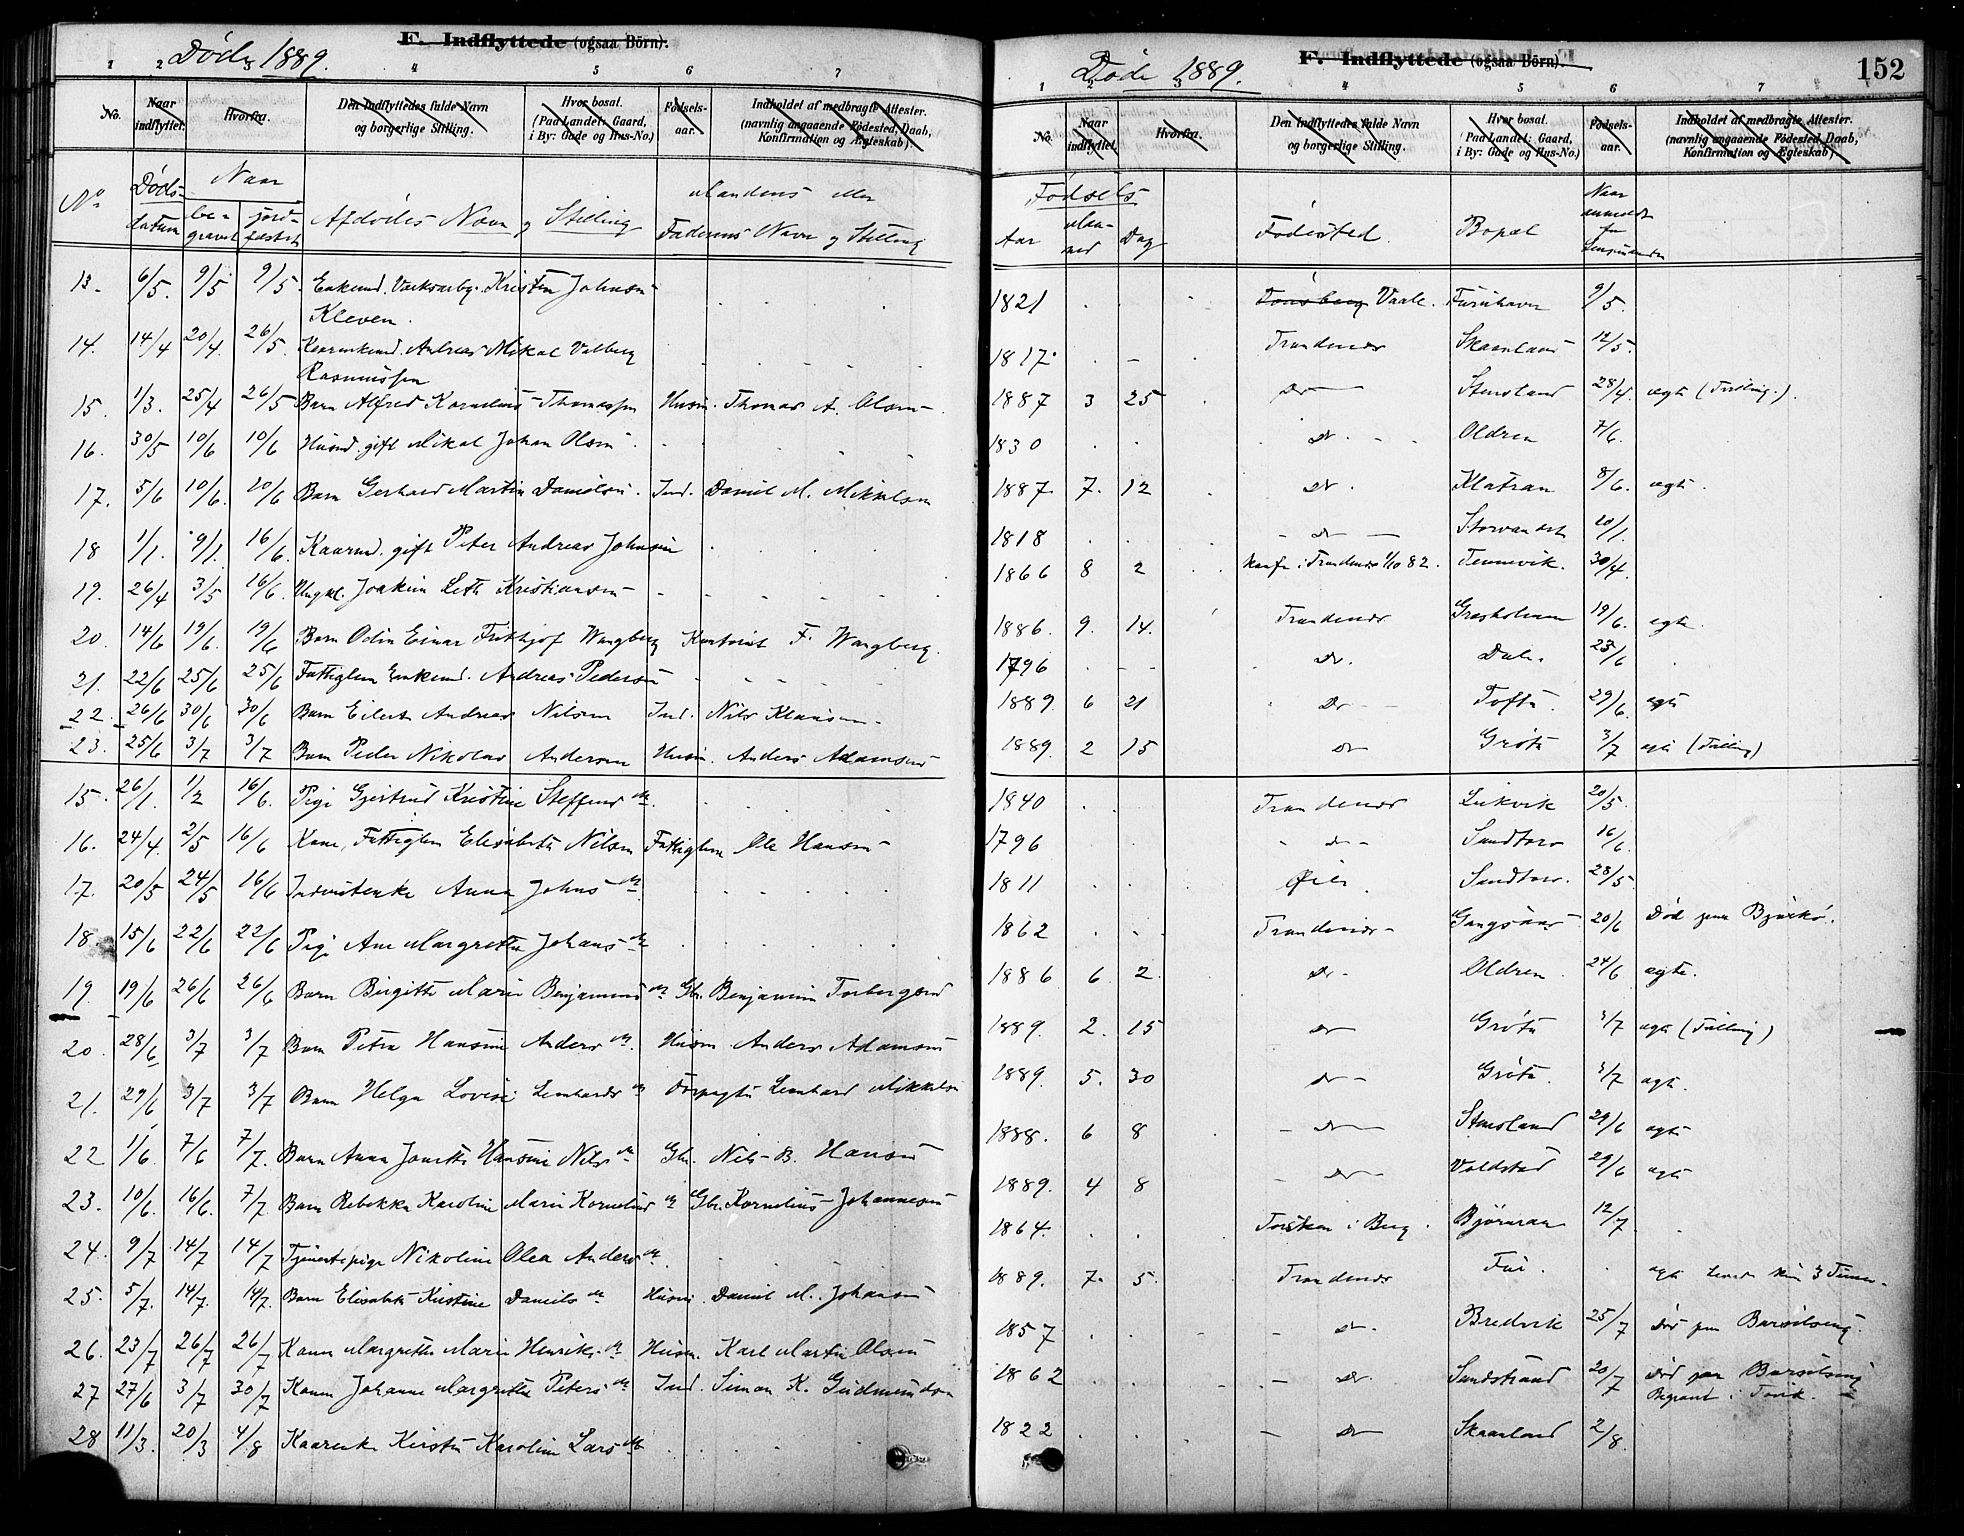 Døde 1889.
F. Indflyttede (ogsaa Börn).
1 2 3 4 5 6 7
No. Naar indflyttet. Hvorfra. Den Indflyttedes fulde Navn og borgerlige Stilling. Hvor bosat. (Paa Landet: Gaard, i By: Gade og Hus-No.) Fødsels-aar. Indholdet af medbragte Attester. (navnlig angaaende Födested, Daab, Konfirmation og Ægteskab).
No Døds-datum Naar be-gravet jord-fæstet Afdødes Navn og Stilling Mandens eller Faderens Navn og Stilling
13. 6/5. 9/5 9/5. Enkemd. Kristen Johnsen
Kleven.
14. 14/4 20/4. 26/5. Kaarenkemd. Andreas Mikal Valberg
Rasmussen
15. 1/3. 25/4 26/5 Barn Alfred Kornelius Thomassen Husm. Thomas A. Olsen
16. 30/5 10/6 10/6 Husmd. gift Mikal Johan Olsen
17. 5/6 10/6. 10/6 Barn Gerhard Martin Danielsen. Ind. Daniel M. Mikalsen
18 1/1. 9/1. 16/6. Kaarmd. gift Peter Andreas Johnsen
19. 26/4 3/5 16/6. Ungkl. Joakim Leth Kristiansen
20. 14/6 19/6. 19/6 Barn Odin Einar Frithjof Wangberg Kontorist F. Wangberg.
21. 22/6 25/6 25/6 Fattiglem Enkemd. Andreas Pedersen
22. 26/6 30/6 30/6 Barn Eilert Andreas Nilsen Ind. Nils Klausen
23. 25/6 3/7 3/7 Barn Peder Nikolai Andersen Husm. Anders Adamsen
15. 26/1. 1/2 16/6. Pige Gjertrud Kristine Steffensdr.
16. 24/4. 2/5 16/6 Kone, Fattiglem Elisabeth Nilsen Fattiglem Ole Hansen
17. 20/5 24/5 16/6 Inderstenke Anna Johnsdr
18. 15/6 22/6 22/6 Pige Ane Margrethe Johansdr
19. 19/6 26/6 26/6 Barn Birgitte Marie Benjaminsdr Gbr. Benjamin Torbergsen
20. 28/6 3/7 3/7 Barn Petra Hansine Andersdr. Husm. Anders Adamsen
21. 29/6 3/7 3/7 Barn Helga Lovise Lenhardsdr Forpagter Lenhard Mikkelsen
22 1/6. 7/6 7/7. Barn Anna Jonette Hansine Nilsdr Gbr. Nils B. Hansen
23. 10/6. 16/6. 7/7. Barn Rebekka Karoline Marie Korneliusdr Gbr. Kornelius Johannesen
24. 9/7 14/7 14/7 Tjenestepige Nikoline Olea Andersdr.
25. 5/7. 14/7 14/7. Barn Elisabeth Kirstine Danielsdr Husm. Daniel M. Johansen
26. 23/7 26/7 26/7 Kone Margrethe Marie Henriksdr Husm. Karl Martin Olsen
27 27/6 3/7 30/7 Kone Johanne Margrethe Petersdr Ind. Simon K. Gudmundsen
28 11/3. 20/3 4/8 Kaarenke Kirsten Karoline Larsdr
Døde 1889.
F. Indflyttede (ogsaa Börn).
152
1 2 3 4 5 6 7
No. Naar indflyttet. Hvorfra. Den Indflyttedes fulde Navn og borgerlige Stilling. Hvor bosat. (Paa Landet: Gaard, i By: Gade og Hus-No.) Fødsels-aar. Indholdet af medbragte Attester. (navnlig angaaende Födested, Daab, Konfirmation og Ægteskab).
Fødsels Aar Maaned Dag Fødested. Bopæl Naar anmeldt for Lensmanden
1821 Tønsberg Vaale. Furuhavn 9/5
1817. Trondenes Skaanland 12/5.
1887 3 25 do Stensland 28/4. ægte (Tvilling.)
1830 do Oldren 7/6.
1887. 7. 12 do Klatran 8/6. ægte
1818 do Storvandet 20/1.
1866 8 2 konf. i Trondenes 1/10 82. Tennevik. 30/4.
1886. 9. 14. Trondenes Grasholmen 19/6. ægte
1796 do. Dale 23/6
1889. 6 21 do Tofte 29/6. ægte
1889. 2 15 do Grøte 3/7 ægte (Tvilling)
1840 Trondenes Leikvik 20/5.
1796 do Sandtorv 16/6.
1811 Øier. Sandtorv. 28/5
1862 Trondenes Gangsaas 20/6 Død paa Bjarkø.
1886 6 2 do Oldren 24/6 ægte.
1889. 2. 15 do Grøte 3/7 ægte (Tvilling)
1889. 5. 30 do Grøte. 3/7 ægte.
1888. 6 8 do Stensland 29/6 ægte
1889. 4 8 do Voldstad 29/6 ægte
1864. Torsken i Berg. Bjørnraa 12/7
1889. 7. 5. Trondenes ægte Levet kun 3 Timer.
1857 do Bredvik 25/7 Død paa Barselseng.
1862 do Sandstrand 20/7 Død paa Barselseng
Begravet i
1822 do Skaanland 2/8.